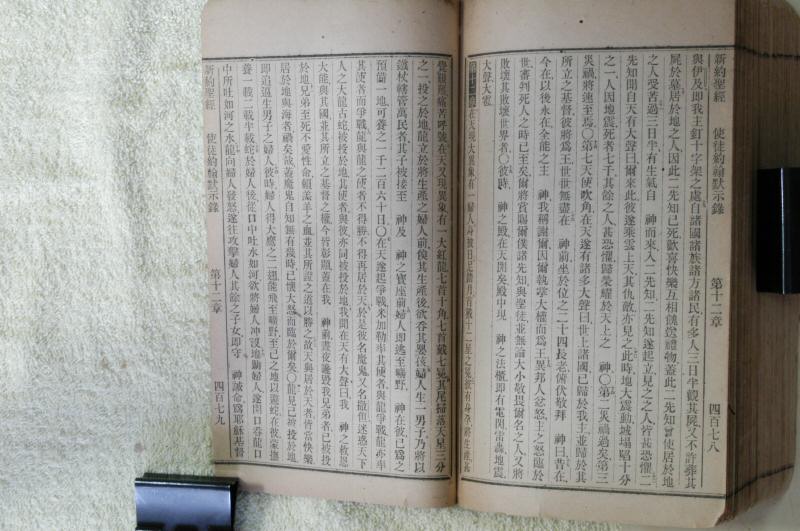 新約聖經　使徒約翰默示錄　第十二章　四百七八
與伊及即我主釘十字架之處自諸國諸族諸方諸民有多人三日半觀其屍又不許葬其
屍於墓居於地之人因此二先知已死歡喜快樂互相餽送禮物蓋此二先知曾使居於地
之人受苦過三日半有生氣自　神而來入二先知二先知遂起立見之之人皆甚恐懼二
先知聞自天有大聲曰爾來此彼遂乘雲上天其仇敵亦見之此時地大震動城塌陷十分
之一人因地震死者七千其餘之人甚恐懼歸榮耀於天上之　神○第二災禍過矣第三
災禍將速至焉○第七天使吹角在天遂有諸多大聲曰世上諸國已歸於我主並歸於其
所立之基督彼將為王世世無盡在　神前坐於位之二十四長老俯伏敬拜　神曰昔在
今在以後永在全能之主　神我稱謝爾因爾執掌大權而為王異邦人忿怒主之怒臨於
世審判死人之時已至矣爾將賞賜爾僕諸先知與聖徒並無論大小敬畏爾名之人又將
敗壞其敗壞世界者○彼時　神之殿在天開矣殿中現　神之法櫃即有電閃雷轟地震
大聲大雹
在天現大異象有一婦人身披日足踏月首戴十二星之冕彼有身孕將生產甚
覺艱難痛苦呼號在天又現異象有一大紅龍七首十角七首戴七冕其尾掃落天星三分
之一投之於地龍立於將生產之婦人前俟其生產後欲吞其嬰孩婦人生一男子乃將以
鐵杖轄管萬民者其子被接至　神及　神之寶座前婦人即逃至曠野　神在彼已為之
預備一地可養之一千二百六十日○在天遂起爭戰米加勒率其使者與龍爭戰龍亦率
其使者而爭戰龍與龍之使者不得勝不得再居於天於是彼名魔鬼又名撒但迷惑天下
人之大龍古蛇被投於地其使者與彼亦同被投於地我聞在天有大聲曰我　神之救恩
大能與其國並其所立之基督之權今皆彰顯蓋在我　神前晝夜讒毀我兄弟者已被投
於地兄弟至死不愛性命賴羔羊之血並其所證之道以勝之故天與居於天者皆當快樂
居於地與海者禍矣哉蓋魔鬼自知無有幾時已懷大怒而臨於爾矣○龍見已被投於地
即追逼生男子之婦人彼時婦人得大鷹之二翅能飛至曠野至己之地以避蛇在彼蒙撫
養一載二載半載蛇於婦人後從口中吐水如河欲將婦人沖沒地助婦人遂開口吞龍口
中所吐如河之水龍向婦人發怒遂往攻擊婦人其餘之子女即守　神誡命為耶穌基督
新約聖經　使徒約翰默示錄　第十二章　四百七九